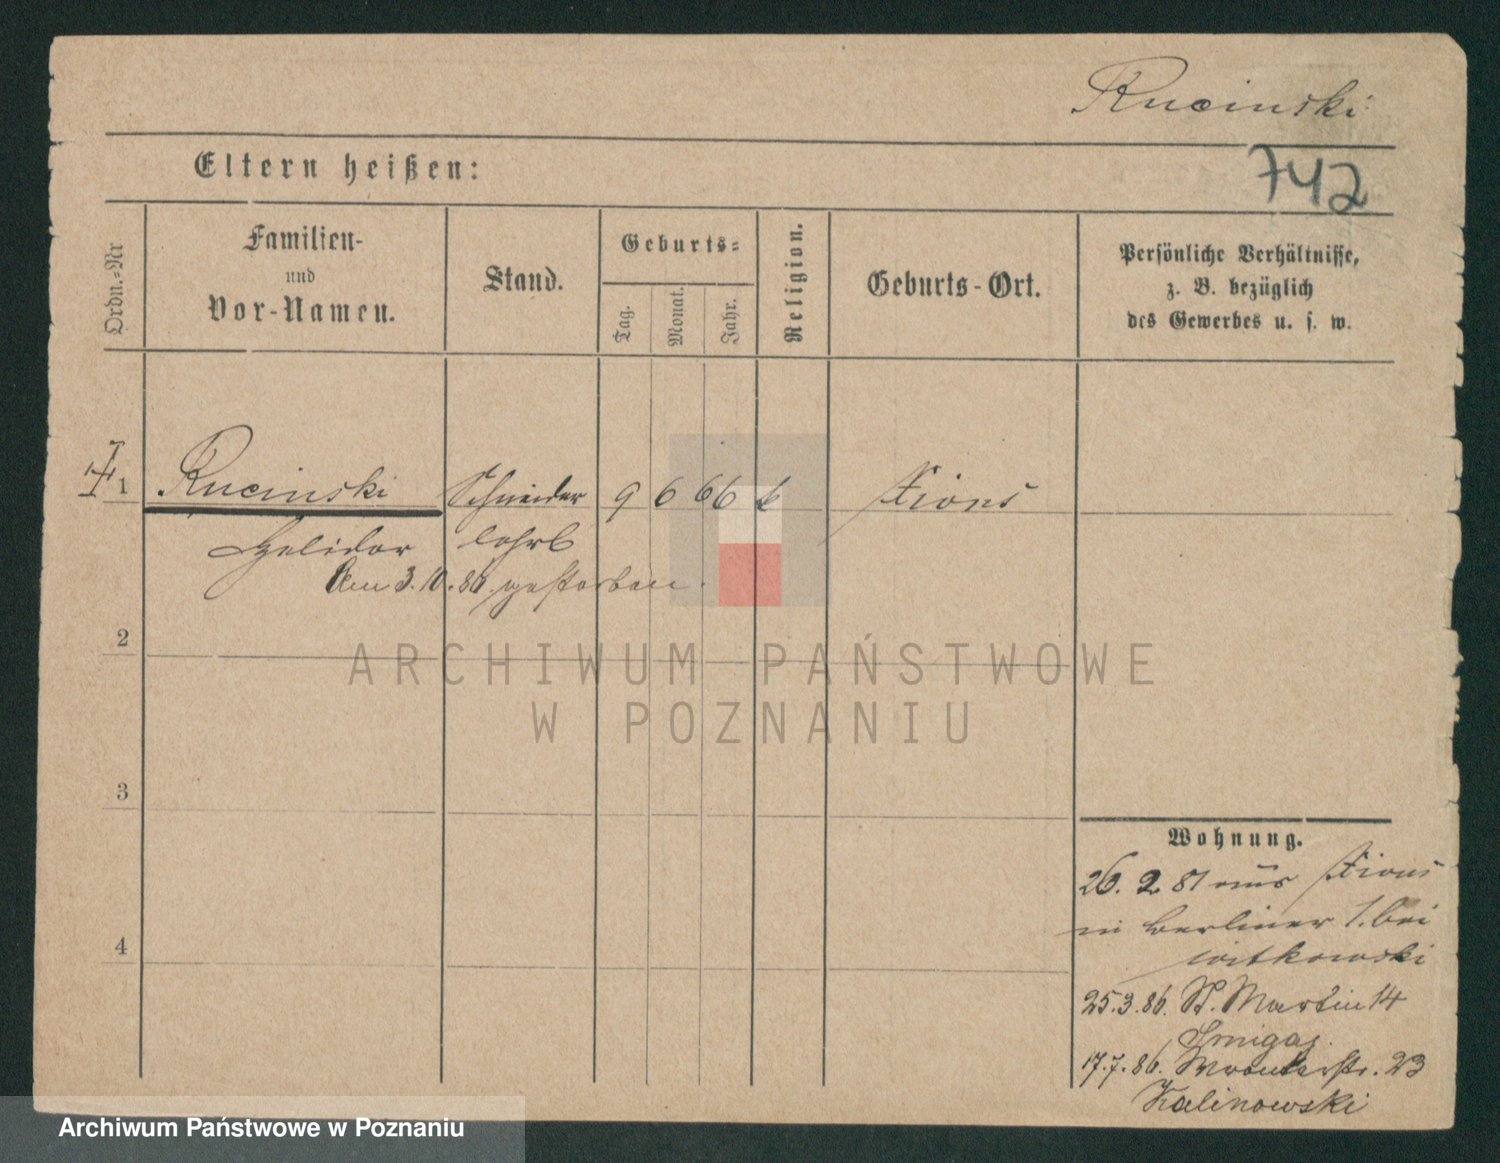 Rucinski
742
Eltern heißen:
Ordn.=Nr
Familien-
und
Vor-Namen.
Stand.
Geburts=
Tag.
Monat.
Jahr.
Religion.
Geburts-Ort.
Persönliche Verhältnisse,
z. B. bezüglich
des Gewerbes u. s. w.
1 Rucinski Schneider 9 6 66 k Xions
Helidor lehrl
Am 3.10.86. gestorben.
2
3
4
Wohnung.
26. 2 81 aus Xions
in Berliner 1. bei
Witkowski
25.3.86. St. Martin 14
Smigaj.
17.7.86. Wronkerstr. 23
Kalinowski
ARCHIWUM PAŃSTWOWE
W POZNANIU
Archiwum Państwowe w Poznaniu